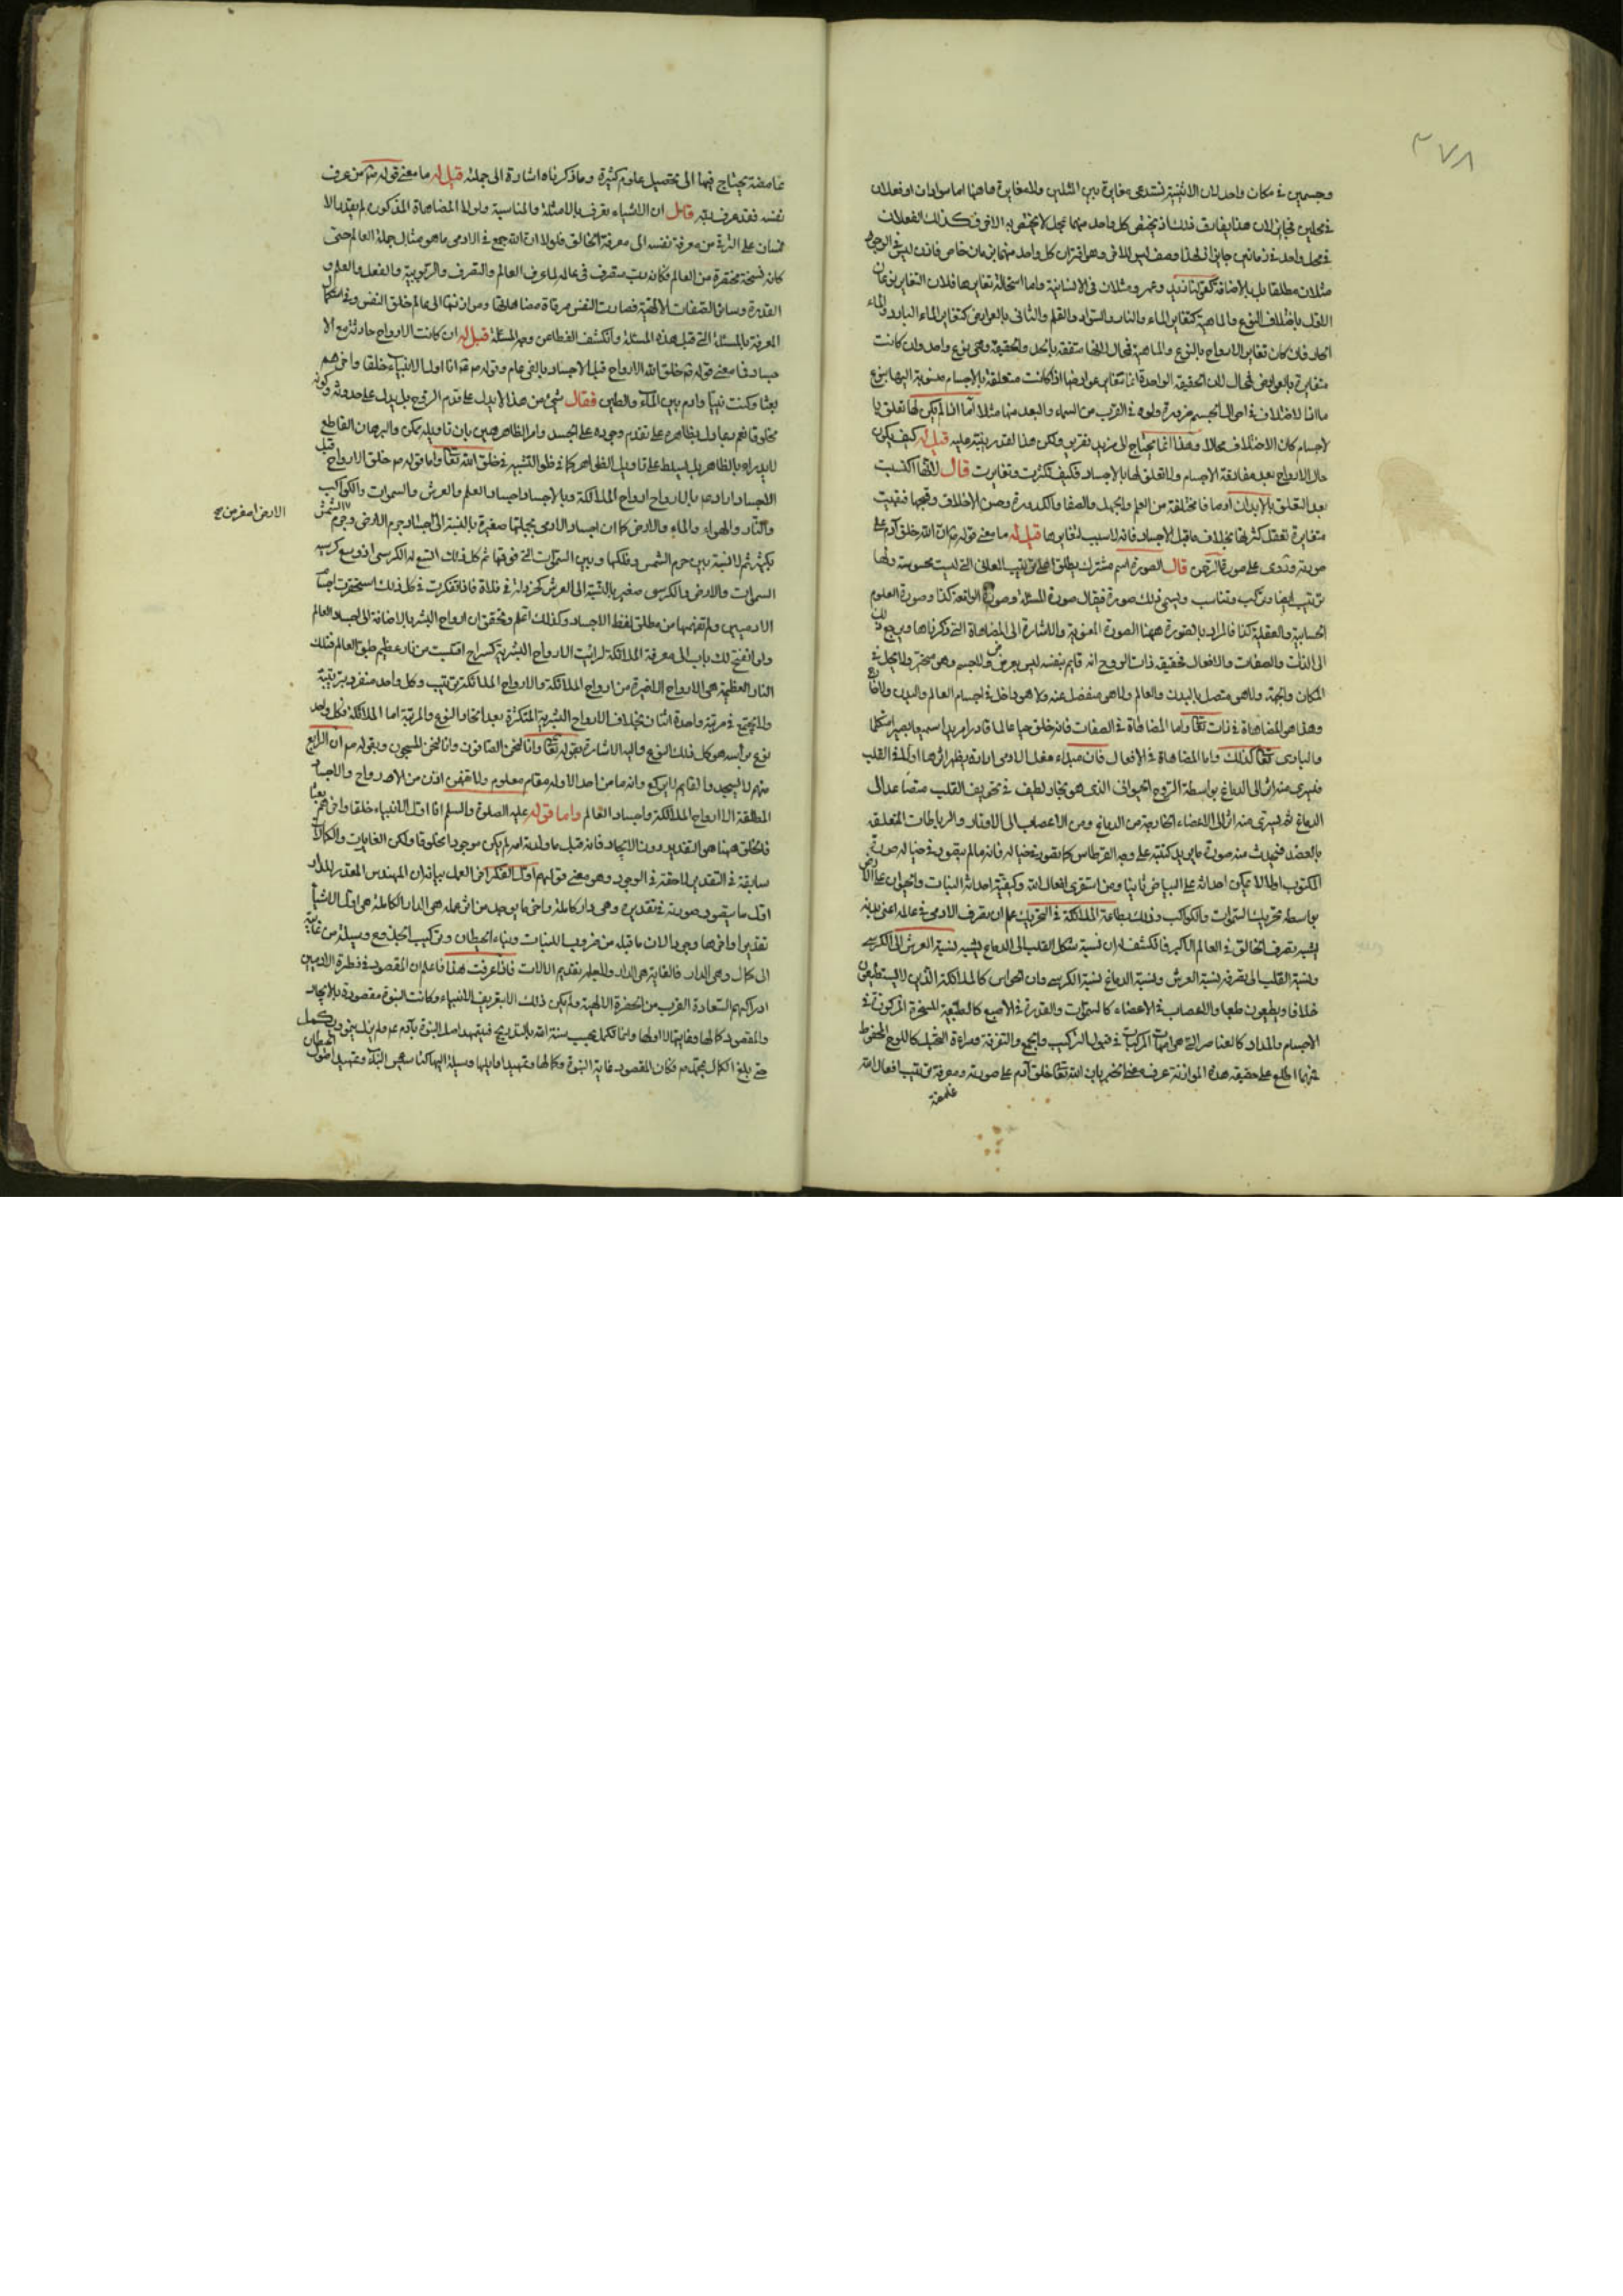 ٣٧٨
وجسمين في مكان واحد لان الاثنينية تستدعي مغايرة بين المثلين ولا مغايرة هاهنا اما سوادان او فعلان
في محلين فجايز لان هذا يفارق ذلك اذ يختص كل واحد منهما بمحل لا يختص به الاخر وكذلك الفعلان
في محل واحد في زمانين جايز اذ لهذا وصف ليس للاخر وهو اقتران كل واحد منهما بزمان خاص فاذن ليس في الوجود
مثلان مطلقا بل بالاضافة كقولنا زيد وعمرو مثلان في الانسانية واما استحالة تغايرها فلان التغاير نوعان
الاول باختلاف النوع والماهية كتغاير الماء والنار والسواد والقلم والثاني بالعوارض كتغاير الماء البارد والماء
الحار فان كان تغاير الارواح بالنوع والماهية فمحال لانها متفقة بالحد والحقيقة وهي نوع واحد وان كانت
متغايرة بالعوارض فمحال لان الحقيقة الواحدة انما تتغاير عوارضها اذا كانت متعلقة بالاجسام منسوبة اليها بنوع
ما اذ الاختلاف في احوال الجسم ضرورة ولو في القرب من السماء والبعد منها مثلا اما اذا لم يكن لها تعلق با
لاجسام كان الاختلاف محالا وهذا انما يحتاج الى مزيد تقرير ولكن هذا القدر ينبه عليه قيل له كيف يكون
حال الارواح بعد مفارقة الاجسام ولا تعلق لها بالاجساد فكيف تكثرت وتغايرت قال لانها اكتسبت
بعد التعلق بالابدان اوصافا مختلفة من العلم والجهل والصفا والكدورة وحسن الاخلاق وقبحها فبقيت
متغايرة تعقل كثرتها بخلاف ما قبل الاجساد فانه لا سبب لتغايرها قيل له ما معنى قوله ان الله خلق آدم على
صورته وروي على صورة الرحمن قال الصورة اسم مشترك يطلق على ترتيب المعاني التي ليست محسوسة ولها
ترتيب ايضا وتركيب وتناسب ويسمى ذلك صورة فيقال صورة المسئلة وصورة الواقعة كذا وصورة العلوم
الحسابية والعقلية كذا فالمراد بالصورة ههنا الصورة المعنوية والاشارة الى المضاهاة التي ذكرناها ويرجع ذلك
الى الذات والصفات والافعال فحقيقة ذات الروح انه قايم بنفسه ليس بعرض ولا جسم وهو متحيز ولا يحل في
المكان والجهة ولا هو متصل بالبدن والعالم ولا هو منفصل عنه ولا هو داخل في اجسام العالم والبدن ولا خارج
وهذا هو المضاهاة في ذات تعالى واما المضاهاة في الصفات فانه خلق حيا عالما قادرا مريدا سميعا بصيرا متكلما
والباري تعالى كذلك واما المضاهاة في الافعال فان مبداء فعل الادمي ارادة يظهر اثرها اولا في القلب
فيسري منه اثر الى الدماغ بواسطة الروح الحيواني الذي هو بخار لطيف في تجويف القلب متصاعد الى
الدماغ ثم يسري منه اثر الى الاعضاء الخارجة من الدماغ ومن الاعصاب الى الاوتار والرباطات المتعلقة
بالعضد فيحدث منه صورة ما يريد كتبته على وجه القرطاس كما تصور في خياله فانه ما لم يتصور في خياله صورة
المكتوب اولا لا يمكن احداثه على البياض ثانيا ومن استقرى افعال الله وكيفية احداثه النبات والحيوان على الارض
بواسطة تحريك السموات والكواكب وذلك بطاعة الملائكة في التحريك علم ان تصرف الادمي في عالمه اعني بدنه
يشبه تصرف الخالق في العالم الاكبر فانكشف له ان نسبة شكل القلب الى الدماغ يشبه نسبة العرش الى الكرسي
ونسبة القلب الى تصرفه نسبة العرش ونسبة الدماغ نسبة الكرسي وان الحواس كالملائكة الذين لا يستطيعون
خلافا ويطيعون طبعا والاعصاب في الاعضاء كالسموات والقدرة في الاصبع كالطبيعة المسخرة المركوزة في
الاجسام والمداد كالعناصر التي هي امهات المركبات في قبول التركيب والجمع والتفرقة ومراءة التخيل كاللوح المحفوظ
فمهما اطلع على حقيقة هذه الموازنة عرف معنى الخبر بان الله تعالى خلق آدم على صورته ومعرفة ترتيب افعال الله
غامضة
غامضة يحتاج فيها الى تحصيل علوم كثيرة وما ذكرناه اشارة الى جملة قيل له ما معنى قوله من عرف
نفسه فقد عرف ربه قال ان الاشياء تعرف بالامثلة والمناسبة ولولا المضاهاة المذكورة لم يقدر الا
نسان على الترقي من معرفة نفسه الى معرفة الخالق فلولا ان الله جمع في الادمي ما هو مثال جملة العالم حتى
كانه نسخة مختصرة من العالم وكانه رب متصرف في عالمه لما عرف العالم والتصرف والربوبية والفعل والعلم و
القدرة وسائر الصفات الالهية فصارت النفس مرقاة
المعرفة بالمسئلة التي قبل هذه المسئلة وانكشف الغطا عن وجه المسئلة قيل له ان كانت الارواح حادثة مع الا
جساد فما معنى قوله خلق الله الارواح قبل الاجساد بالفي عام وقوله انا اول الانبياء خلقا واخرهم
بعثا وكنت نبيا وادم بين الماء والطين فقال شيء من هذا لا يدل على قدم الروح بل يدل على حدوثه وكونه
مخلوقا نعم ربما دل بظاهره على تقدم وجوده على الجسد وامر الظاهر هين بان تاويله ممكن والبرهان القاطع
لا يدراء بالظاهر بل يسلط على تاويل الظواهر كما في ظواهر التشبيه في خلق الله تعالى واما قوله خلق الارواح قبل
الاجساد اراد بالارواح ارواح الملائكة وبالاجساد اجساد العلم والعرش والسموات والكواكب
والنار والهواء والماء والارض كما ان اجساد الادمي بجملتها صغيرة بالنسبة الى اجساد جرم الارض وجرم الشمس
بكثير ثم لا نسبة بين جرم الشمس وفلكها وبين السموات التي فوقها ثم كل ذلك اتسع له الكرسي اذ وسع كرسيه
السموات والارض والكرسي صغير بالنسبة الى العرش كحردلة في فلاة فاذا تفكرت في كل ذلك استحقرت اجساد
الادميين ولم تفهمها من مطلق لفظ الاجساد وكذلك اعلم وتحقق ان ارواح البشر بالاضافة الى اجساد العالم
ولو انفتح لك باب الى معرفة الملائكة لرايت الارواح البشرية كسراج اقتبست من نار عظيم طبق العالم فتلك
النار العظيمة هي الارواح الاخيرة من ارواح الملائكة والارواح الملائكة ترتيب وكل واحد منفرد برتبة
ولا يجتمع في مرتبة واحدة اثنان بخلاف الارواح البشرية المتكثرة بعد اتحاد النوع والمرتبة اما الملائكة فكل واحد
نوع براسه هو كل ذلك النوع واليه الاشارة بقوله تعالى وانا لنحن الصافون وانا لنحن المسبحون وبقوله ان الراكع
منهم لا يسجد والقايم لا يركع وانه ما من احد الا وله مقام معلوم ولا تفهمن اذن من الارواح والاجساد
المطلقة الا ارواح الملائكة واجساد العالم واما قوله عليه الصلوة والسلم انا اول الانبياء خلقا واخرهم بعثا
فالخلق ههنا هو التقدير دون الايجاد فانه قبل ما ولدته امه لم يكن موجودا مخلوقا ولكن الغايات والكمالات
سابقة في التقدير لاحقة في الوجود وهو معنى قولهم اول الفكر اخر العمل بيانه ان المهندس المقدر للدار
اول ما يتصور صورته في تقديره وهي دار كاملة واخر ما يوجد من اثر عمله هي الدار الكاملة هي اول الاشياء
تقديرا واخرها وجودا لان ما قبله من ضروب اللبنات وبناء الحيطان وتركيب الجذوع وسيلة من غاية
الى كمال وهي الدار فالغاية هي الدار ولاجله تقديم الالات فاذا عرفت هذا فاعلم ان المقصود في فطرة الادميين
ادراكهم السعادة القرب من الحضرة الالهية ولم يكن ذلك الا بتعريف الانبياء وكانت النبوة مقصودة بالايجاد
والمقصود كمالها وغايتها لا اولها وانما تكمل بحسب سنة الله بالتدريج فتمهد اصل النبوة بآدم عم ولم يزل ينمو ويكمل
حتى بلغ الكمال بمحمد وكان المقصود غاية النبوة وكمالها وتمهيد اوايلها وسيلة اليها
الارض اصغر من ج